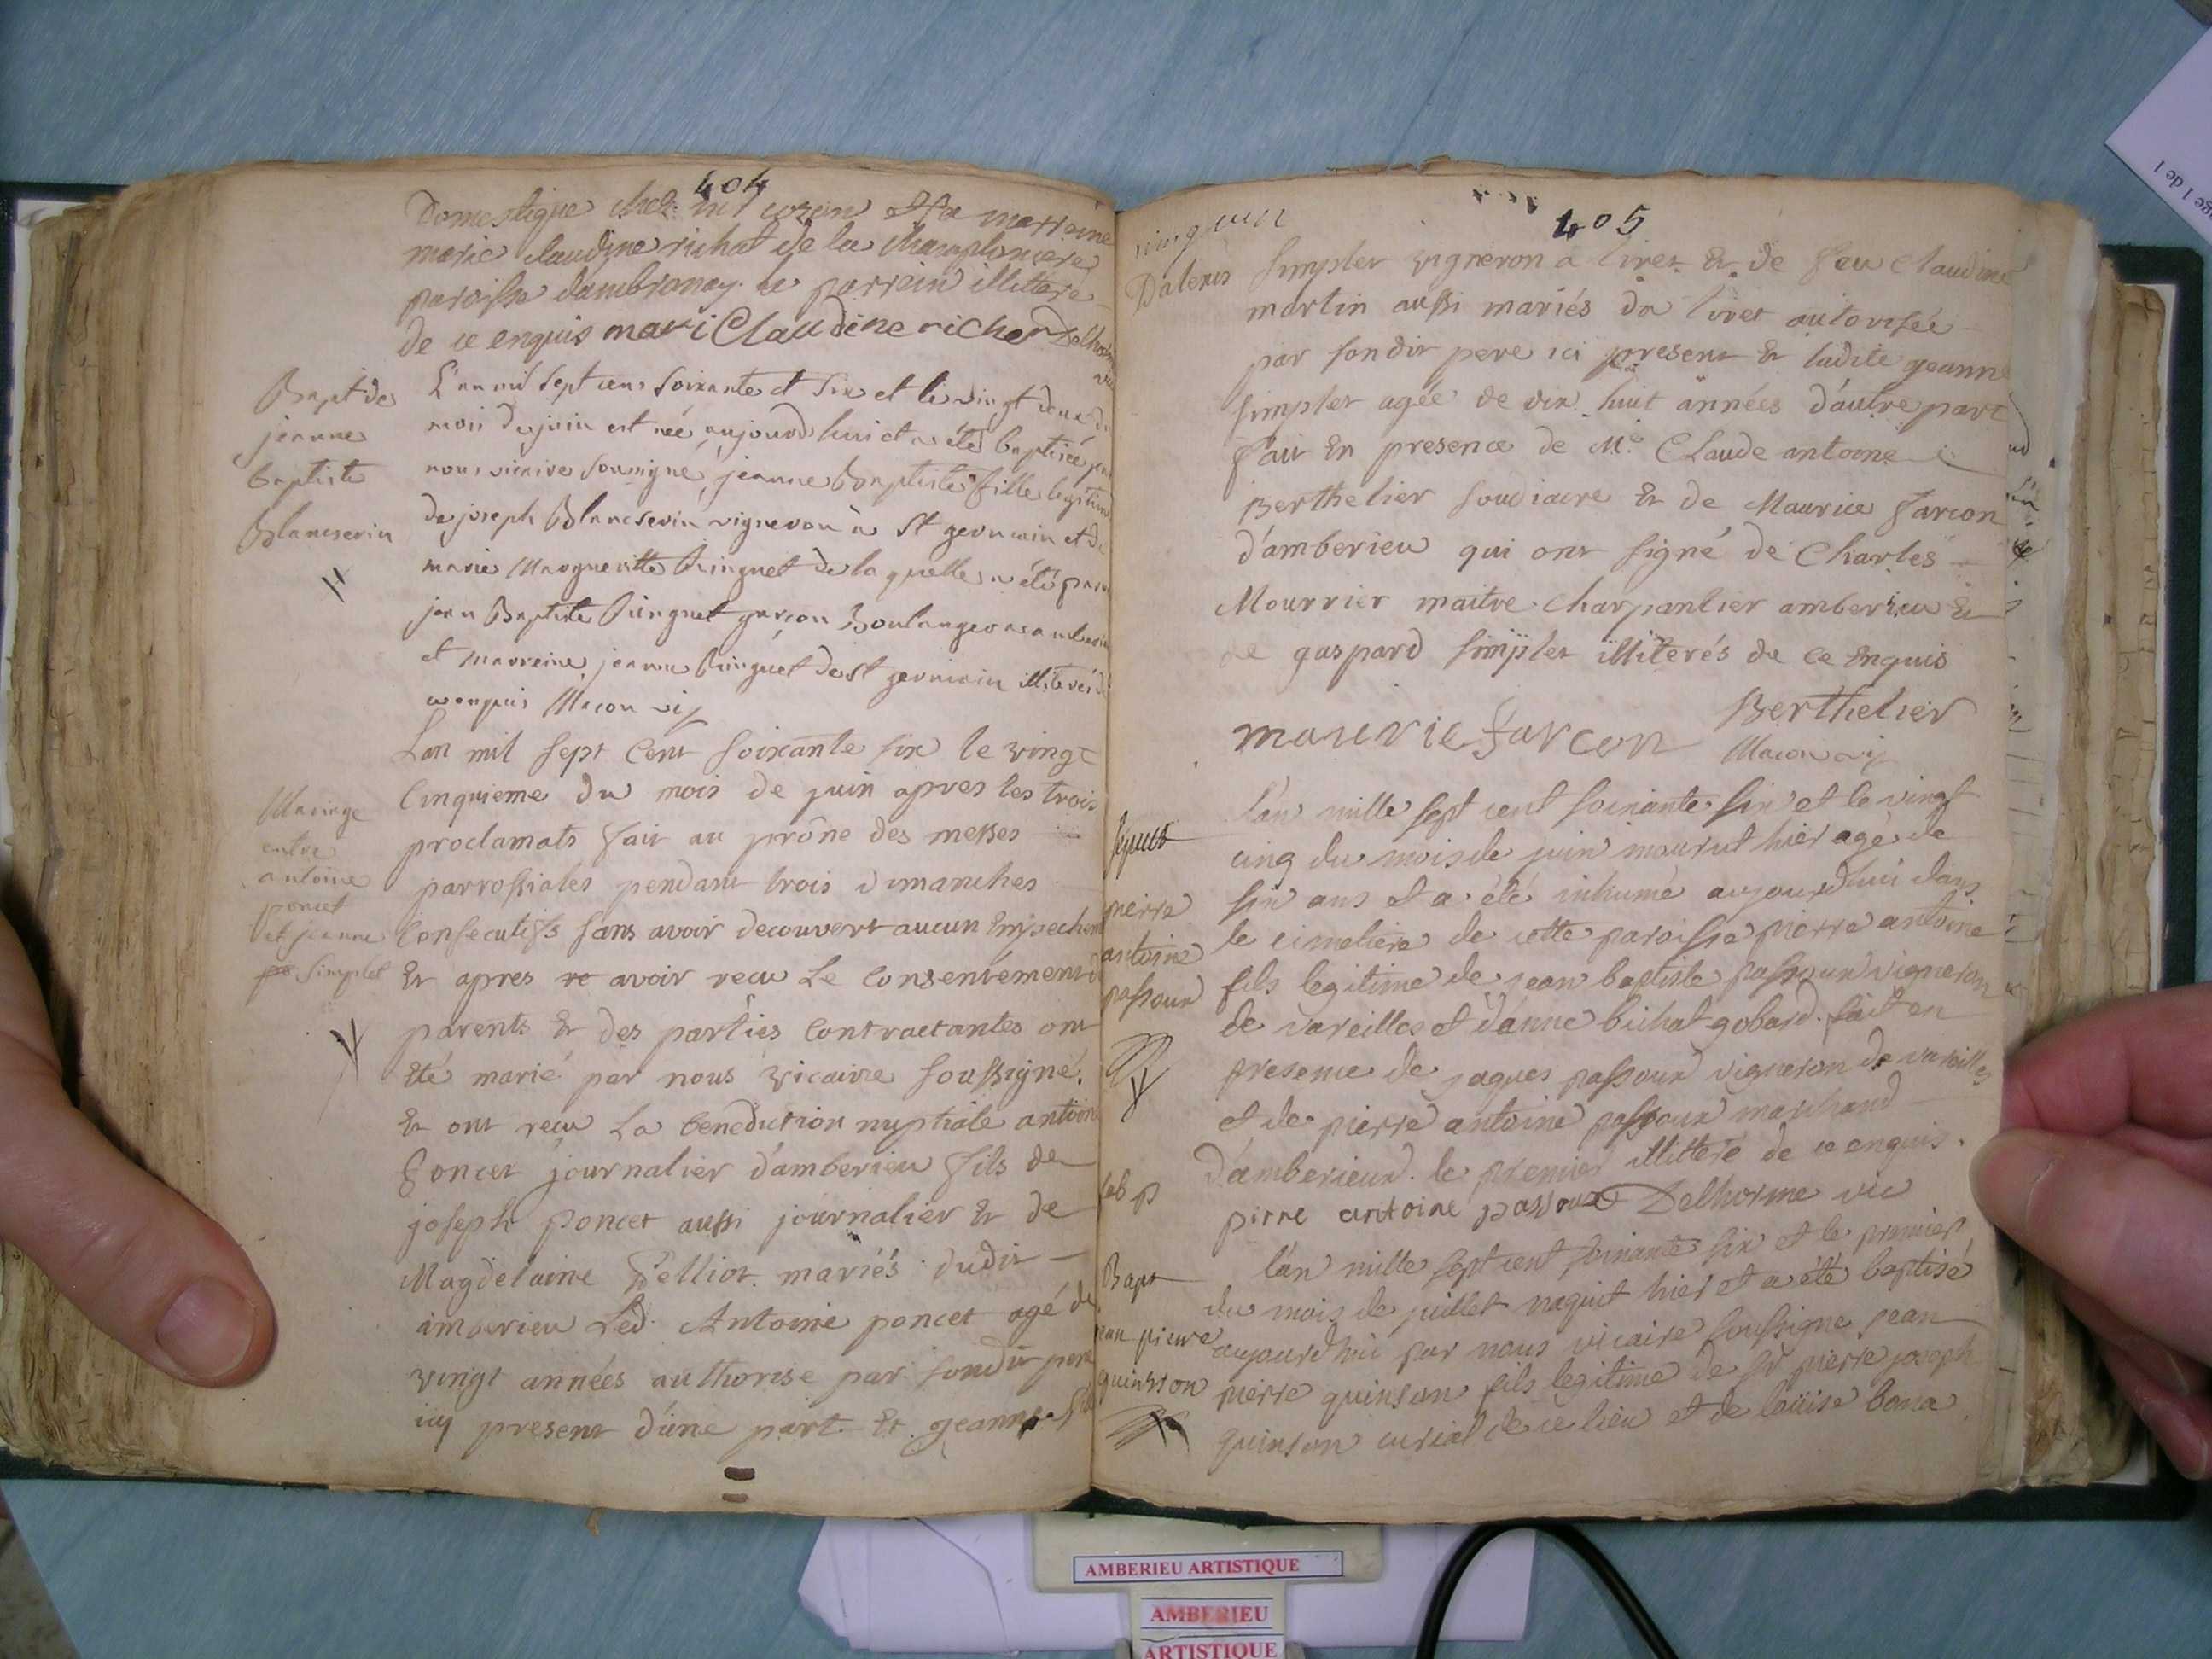 404
Domestique chez mr cozon et la marraine
marie claudine richat de la champloniere
paroisse dambronay. le parrein illittere
de ce enquis mari Claudine richer Delhorme
Bapt de
jeanne
baptiste
Blancserin
L'an mil sept cens soixante et six et le vingt deux du
mois de juin est née aujourdhui et a été baptisée par
nous vicaire soussigné, jeanne Baptiste fille legitime
de joseph Blancserin vigneron à St germain et de
marie Margueritte Ringuet de laquelle a été parain
jean Baptiste Ringuet garçon Boulanger a amberieu
et marreine jeanne Ringuet de St germain illiterés de
ce enquis Macon vic
Mariage
entre
antoine
poncet
et jeanne
simplet
Lan mil sept Cent soixante six le vingt
Cinquieme du mois de juin apres les trois
proclamats fait au prône des messes
parrossiales pendant trois dimanches
Consecutifs sans avoir decouvert aucun Empechem
Et apres re avoir recu Le Consentement d
parents & des parties Contractantes ont
Eté marié par nous vicaire soussigné.
& ont recu La benediction nuptiale antoine
Poncet journalier d'amberieu fils de
joseph poncet aussi journalier & de
Magdelaine Pelliot mariés dudit
amberieu Led. Antoine poncet agé de
vingt années authorise par sondit pere
icy present d'une part Et jeanne
405
vingt un
Dalexis
Simplet vigneron a tiret & de feu Claudine
martin aussi mariés du tiret autorisée
par sondit pere ici present & ladite jeanne
simplet agée de dix huit années d'autre part
fait En presence de Mre Claude antoine
Berthelier soudiacre & de Maurice Farcon
d'amberieu qui ont signé de Charles
Mourrier maitre charpantier amberieu &
de gaspard simplet illiterés de ce Enquis
maurice farcon Berthelier
Macon vic
sepult
pierre
antoine
passoud
l'an mille sept cent soixante six et le vingt
cinq du mois de juin mourut hier agé de
six ans et a été inhumé aujourd'hui dans
le cimetiere de cette paroisse pierre antoine
fils legitime de jean baptiste passoud vigneron
de vareilles et d'anne bichat gobard. fait en
presence de jaques passoud vigneron de vareilles
et de pierre antoine passoud marchand
d'amberieux. le premier illitteré de ce enquis.
pirre antoine passoud Delhorme vic
Bapt
jean pierre
quinson
l'an mille sept cent soixante six et le premier
du mois de juillet naquit hier et a été baptisé
aujourd'hui par nous vicaire soussigne jean
pierre quinson fils legitime de sr pierre joseph
quinson curial de ce lieu et de loüise bona
AMBERIEU ARTISTIQUE
AMBERIEU
ARTISTIQUE